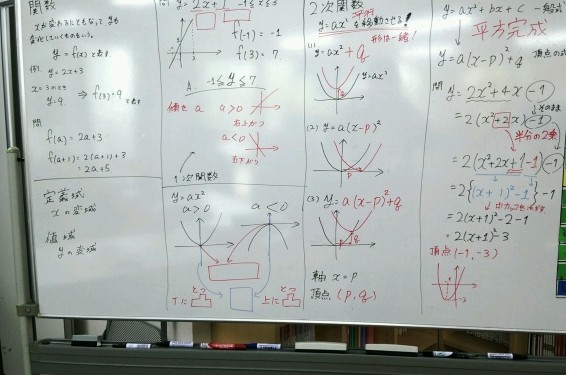 関数
y = f(x) と表す
例. y = 2x+3
x=3のとき
y=9. ⇒ f(3)=9 と表す
問
f(a) = 2a+3
f(a+1) = 2(a+1)+3
= 2a+5
定義域
xの変域
値域
yの変域
y = 2x+1 -1≦x≦3
f(-1) = -1
f(3) = 7.
A. -1≦y≦7
傾き a a>0
右上がり
a<0
右下がり
1次関数
y=ax²
a>0 a<0
下に とつ 上に とつ
2次関数
y=ax²を平行移動させる!
形は一緒!
(1) y=ax²+q
y=ax²
q
(2) y=a(x-p)²
p
(3) y=a(x-p)²+q
軸 x=p
頂点 (p, q)
y=ax²+bx+c 一般式
平方完成
y=a(x-p)²+q 頂点の式
問 y=2x²+4x-1
そのまま
=2(x²+2x)-1
半分の2乗
=2(x²+2x+1-1)-1
=2{(x+1)²-1}-1
=2(x+1)²-2-1
=2(x+1)²-3
頂点(-1,-3)